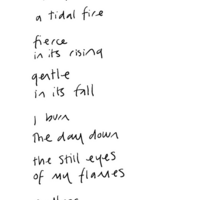 a tidal fire
fierce
in its rising
gentle
in its fall
I burn
the day down
the still eyes
of my flames